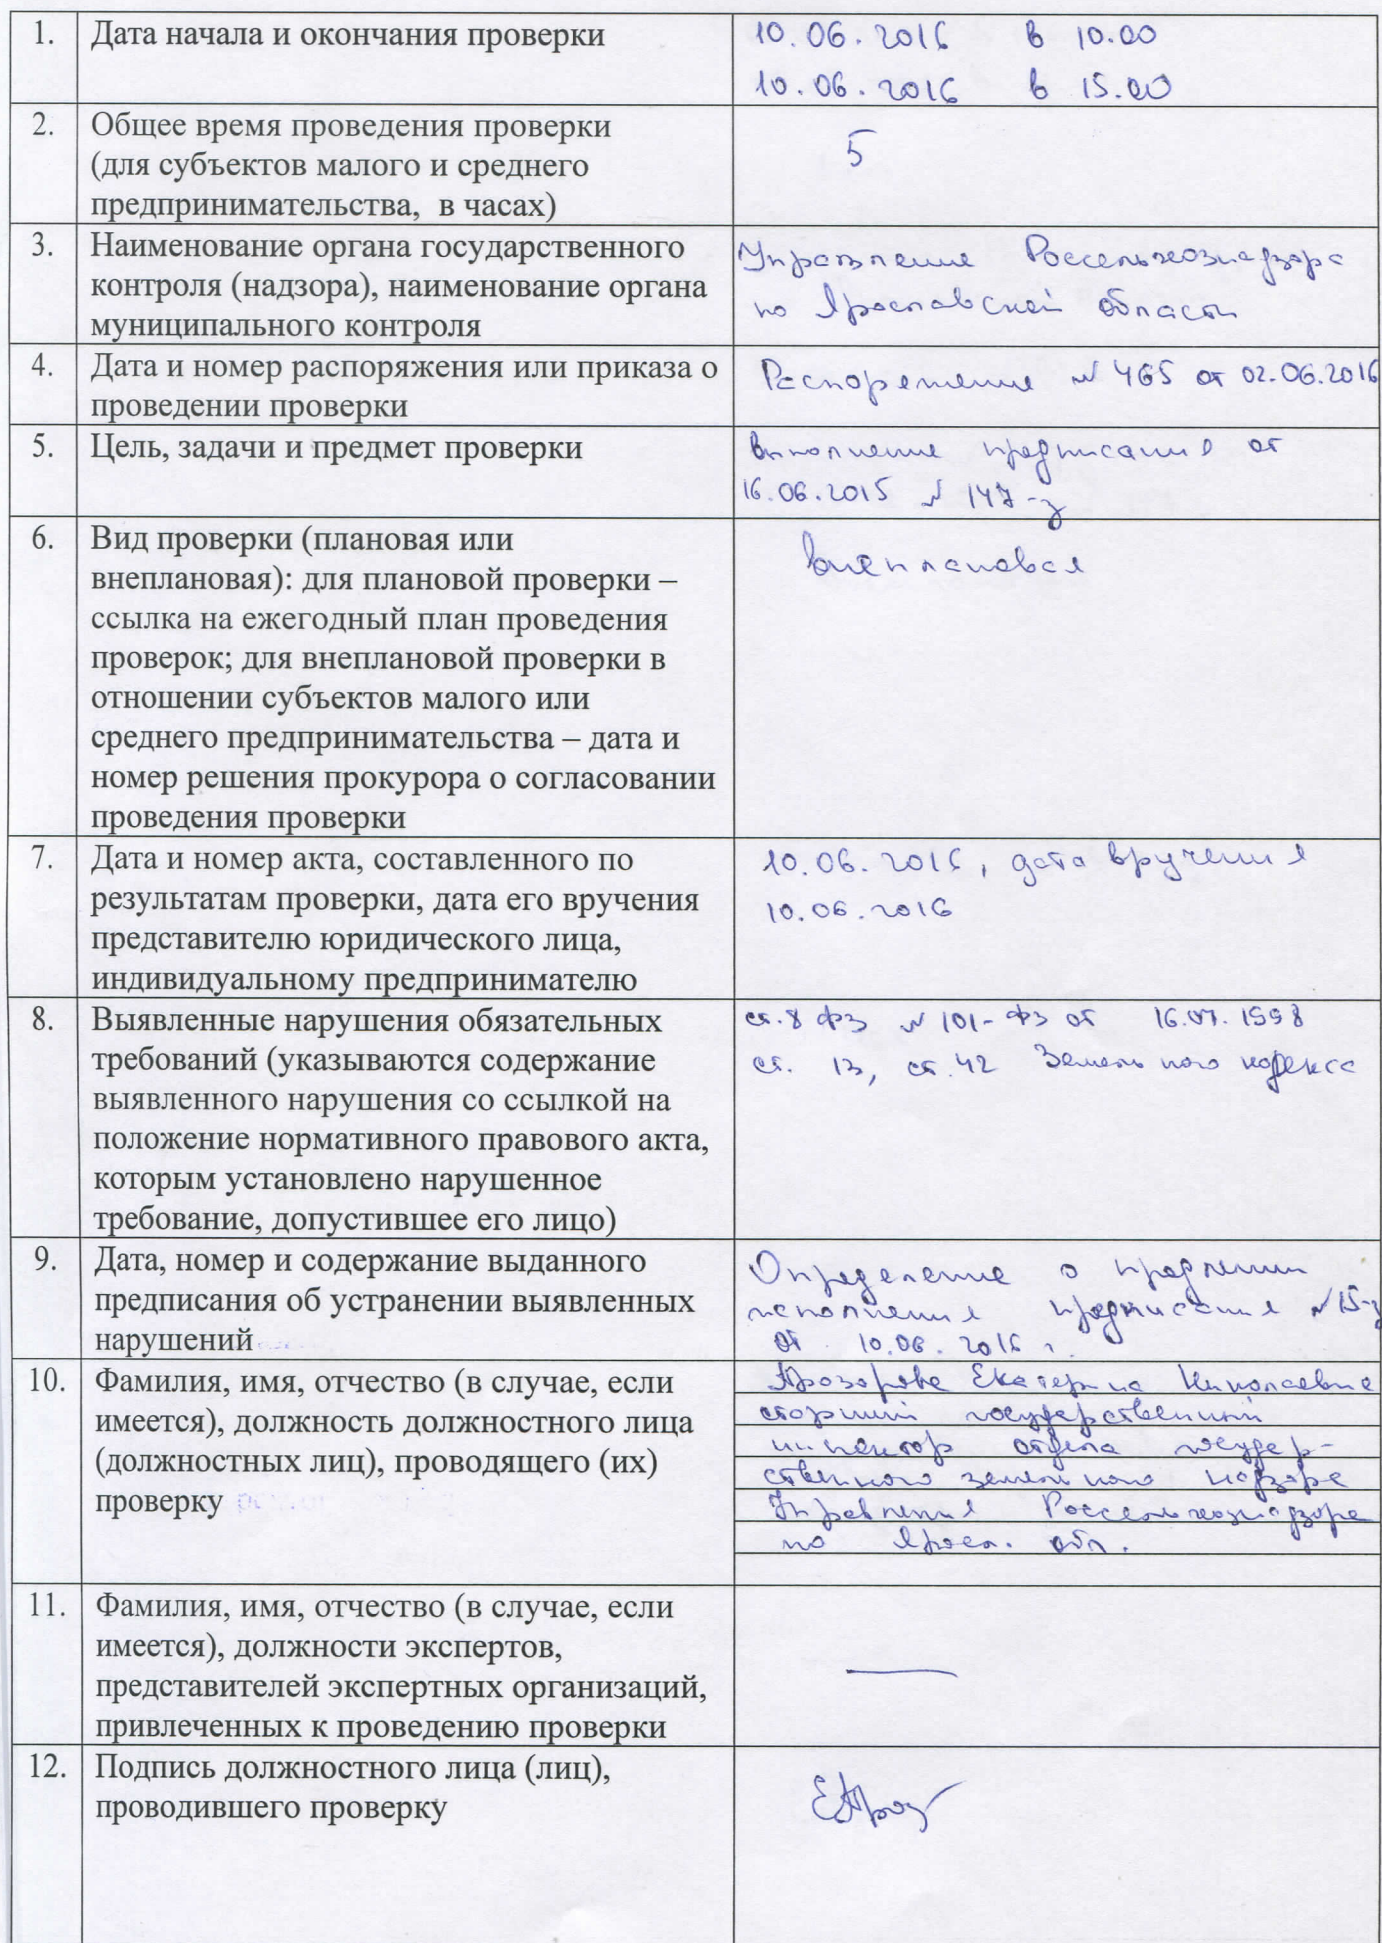 1. Дата начала и окончания проверки
10.06.2016 в 10.00
10.06.2016 в 15.00
2. Общее время проведения проверки
(для субъектов малого и среднего
предпринимательства, в часах)
5
3. Наименование органа государственного
контроля (надзора), наименование органа
муниципального контроля
Управление Россельхознадзора
по Ярославской области
4. Дата и номер распоряжения или приказа о
проведении проверки
Распоряжение № 465 от 02.06.2016
5. Цель, задачи и предмет проверки
Выполнение предписания от
16.06.2015 № 147-з
6. Вид проверки (плановая или
внеплановая): для плановой проверки –
ссылка на ежегодный план проведения
проверок; для внеплановой проверки в
отношении субъектов малого или
среднего предпринимательства – дата и
номер решения прокурора о согласовании
проведения проверки
внеплановая
7. Дата и номер акта, составленного по
результатам проверки, дата его вручения
представителю юридического лица,
индивидуальному предпринимателю
10.06.2016, дата вручения
10.06.2016
8. Выявленные нарушения обязательных
требований (указываются содержание
выявленного нарушения со ссылкой на
положение нормативного правового акта,
которым установлено нарушенное
требование, допустившее его лицо)
ст.8 ФЗ № 101-ФЗ от 16.07.1998
ст. 13, ст.42 Земельного кодекса
9. Дата, номер и содержание выданного
предписания об устранении выявленных
нарушений
Определение о продлении
исполнения предписания № 15-з
от 10.06.2016 г.
10. Фамилия, имя, отчество (в случае, если
имеется), должность должностного лица
(должностных лиц), проводящего (их)
проверку
Екатерина Николаевна
старший государственный
инспектор отдела государ-
ственного земельного надзора
Управления Россельхознадзора
по Яросл. обл.
11. Фамилия, имя, отчество (в случае, если
имеется), должности экспертов,
представителей экспертных организаций,
привлеченных к проведению проверки
12. Подпись должностного лица (лиц),
проводившего проверку